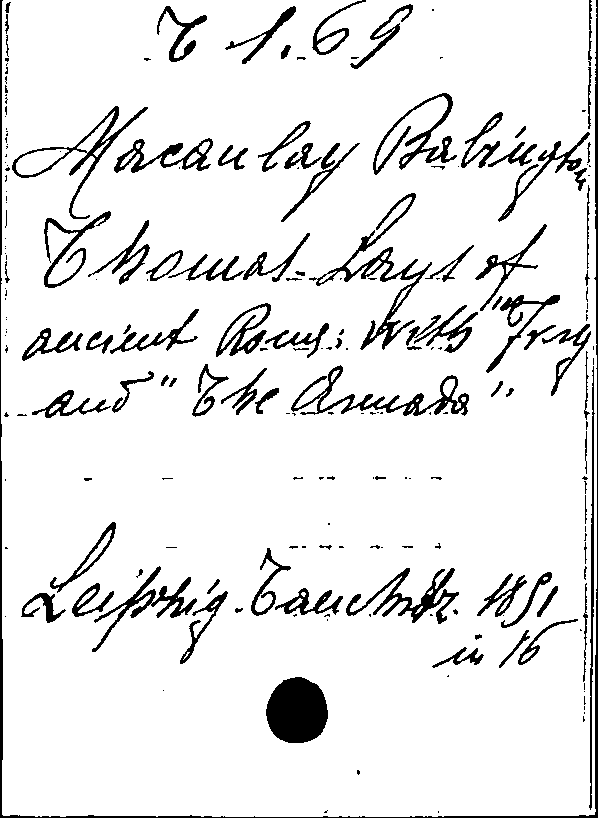 T 1. 69
Macaulay Babington
Thomas - Lays of
ancient Rome: with "Ivry
and "The Armada"
Leipzig. Tauchnitz. 1851
in 16